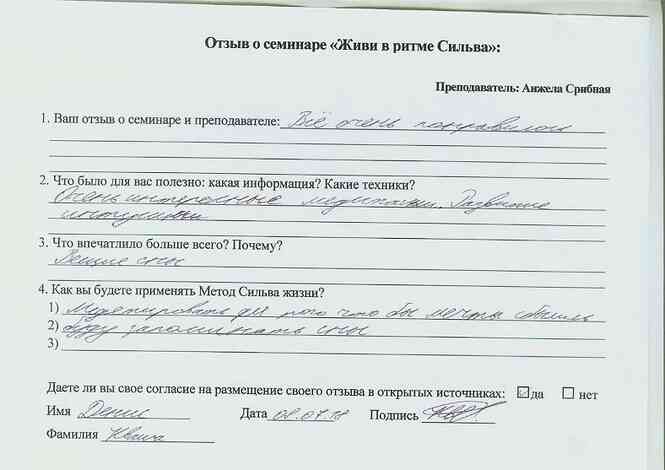 Отзыв о семинаре «Живи в ритме Сильва»:
Преподаватель: Анжела Срибная
1. Ваш отзыв о семинаре и преподавателе: Всё очень понравилось
2. Что было для вас полезно: какая информация? Какие техники?
Очень интересные медитации. Развитие
интуиции
3. Что впечатлило больше всего? Почему?
Вещие сны
4. Как вы будете применять Метод Сильва жизни?
1) Медитировать для того что бы мечты сбылись
2) буду запоминать сны
3)
Даете ли вы свое согласие на размещение своего отзыва в открытых источниках: ☑ да ☐ нет
Имя Денис Дата 08.07.18 Подпись
Фамилия